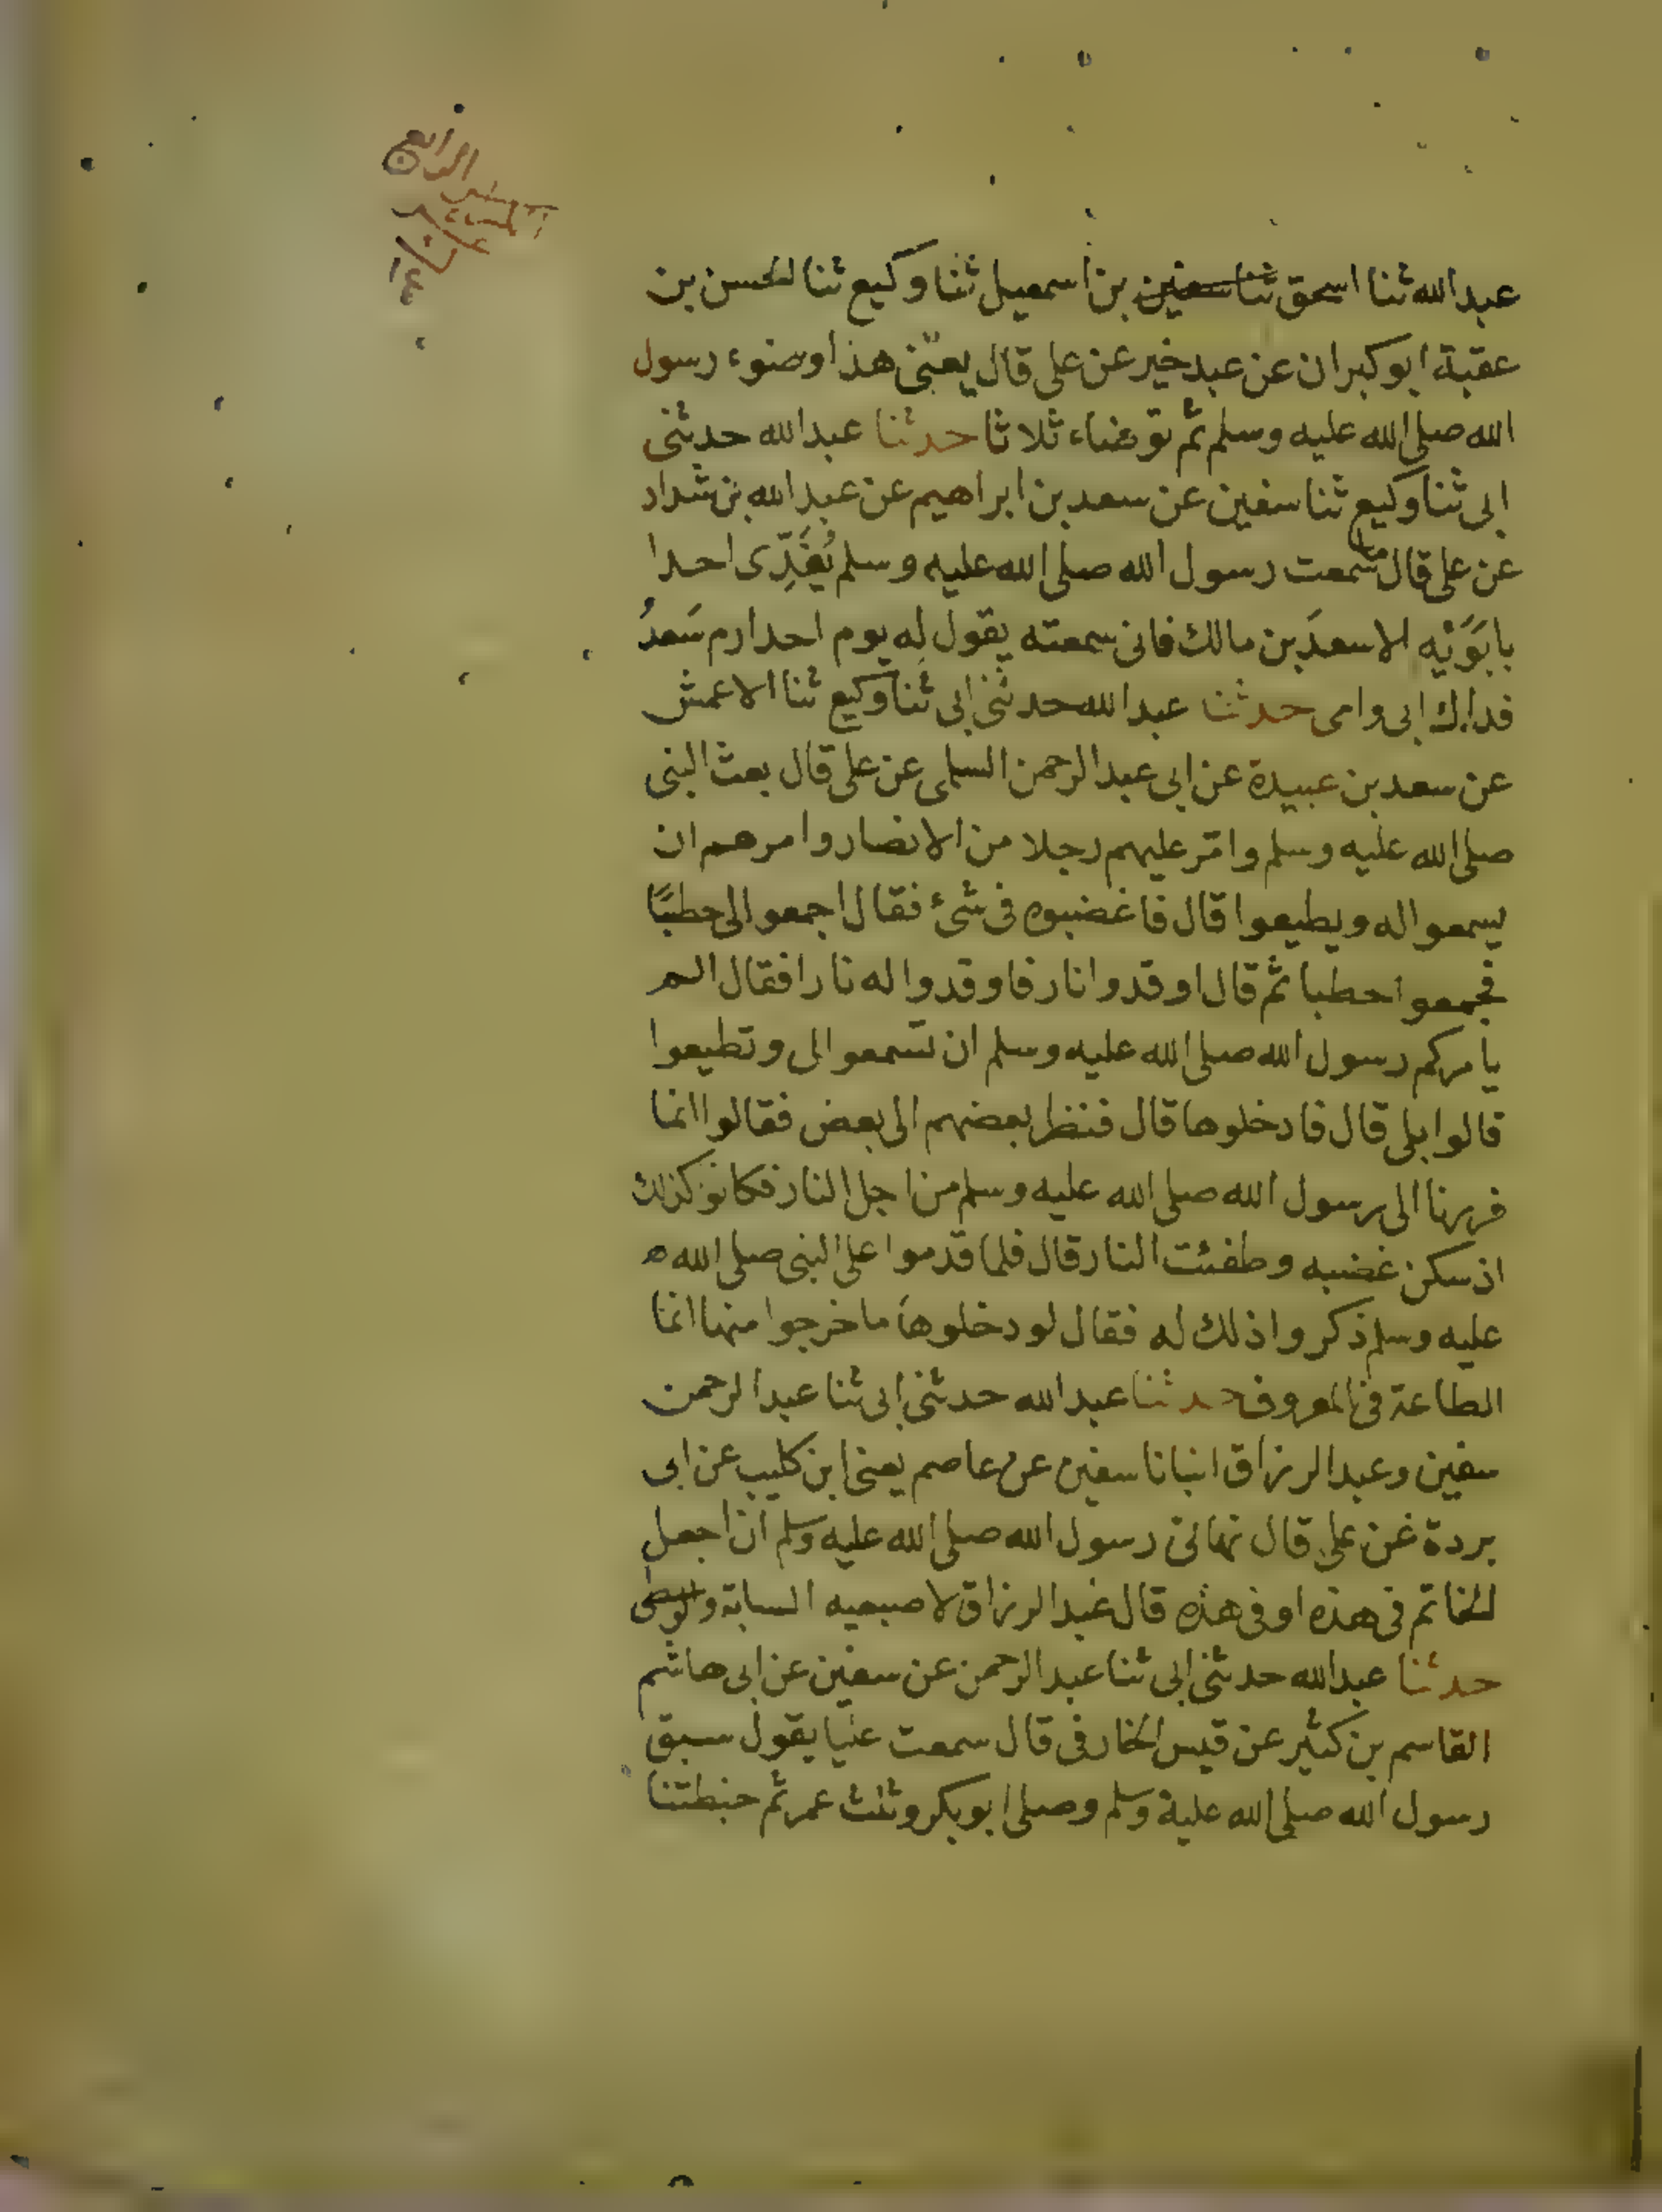 الرابع
عبد الله ثنا اسحق ثنا سفين بن اسمعيل ثنا وكيع ثنا الحسن بن
عقبة ابو كبران عن عبد خير عن على قال يعنى هذا وضوء رسول
الله صلى الله عليه وسلم ثم توضاء ثلاثا حدثنا عبد الله حدثنى
ابى ثنا وكيع ثنا سفين عن سعد بن ابراهيم عن عبد الله بن شداد
عن على قال ما سمعت رسول الله صلى الله عليه وسلم يُفَدِّى احدا
بابَوَيْه الا سعدَ بن مالك فانى سمعته يقول له يوم احد ارم سَعدُ
فداك ابى وامى حدثنا عبد الله حدثنى ابى ثنا وكيع ثنا الاعمش
عن سعد بن عبيدة عن ابى عبد الرحمن السلمى عن على قال بعث النبى
صلى الله عليه وسلم وامّر عليهم رجلا من الانصار وامرهم ان
يسمعوا له ويطيعوا قال فاغضبوه فى شئ فقال اجمعوا لى حطبًا
فجمعوا حطبا ثم قال اوقدوا نار فاوقدوا له نارا فقال الم
يامركم رسول الله صلى الله عليه وسلم ان تسمعوا لى وتطيعوا
قالوا بلى قال فادخلوها قال فنظر بعضهم الى بعض فقالوا انما
فررنا الى رسول الله صلى الله عليه وسلم من اجل النار فكانو كذلك
اذ سكن غضبه وطفئت النار قال فلما قدموا على النبى صلى الله ه
عليه وسلم ذكروا ذلك له فقال لو دخلوها ما خرجوا منها انما
الطاعة فى المعروف حدثنا عبد الله حدثنى ابى ثنا عبد الرحمن
سفين وعبد الرزاق انبانا سفين عن عاصم يعنى ابن كليب عن ابى
بردة عن على قال نهانى رسول الله صلى الله عليه وسلم ان اجعل
الخاتم فى هذه او فى هذه قال عبد الرزاق لاصبعيه السبابة والوسطى
حدثنا عبد الله حدثنى ابى ثنا عبد الرحمن عن سفين عن ابى هاشم
القاسم بن كثير عن قيس الخارفى قال سمعت عليا يقول سبق
رسول الله صلى الله عليه وسلم وصلى ابو بكر وثلث عمر ثم خبطتنا